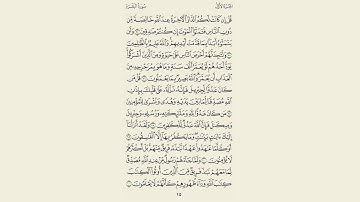 سُورَةُ البَقَرَةِ الجُزْءُ الأَوَّلُ
قُلْ إِن كَانَتْ لَكُمُ ٱلدَّارُ ٱلْـَٔاخِرَةُ عِندَ ٱللَّهِ خَالِصَةً مِّن
دُونِ ٱلنَّاسِ فَتَمَنَّوُا۟ ٱلْمَوْتَ إِن كُنتُمْ صَـٰدِقِينَ ٩٤ وَلَن
يَتَمَنَّوْهُ أَبَدًۢا بِمَا قَدَّمَتْ أَيْدِيهِمْ وَٱللَّهُ عَلِيمٌۢ بِٱلظَّـٰلِمِينَ ٩٥
وَلَتَجِدَنَّهُمْ أَحْرَصَ ٱلنَّاسِ عَلَىٰ حَيَوٰةٍ وَمِنَ ٱلَّذِينَ أَشْرَكُوا۟
يَوَدُّ أَحَدُهُمْ لَوْ يُعَمَّرُ أَلْفَ سَنَةٍ وَمَا هُوَ بِمُزَحْزِحِهِۦ مِنَ
ٱلْعَذَابِ أَن يُعَمَّرَ وَٱللَّهُ بَصِيرٌۢ بِمَا يَعْمَلُونَ ٩٦ قُلْ مَن
كَانَ عَدُوًّا لِّجِبْرِيلَ فَإِنَّهُۥ نَزَّلَهُۥ عَلَىٰ قَلْبِكَ بِإِذْنِ
ٱللَّهِ مُصَدِّقًا لِّمَا بَيْنَ يَدَيْهِ وَهُدًى وَبُشْرَىٰ لِلْمُؤْمِنِينَ ٩٧
مَن كَانَ عَدُوًّا لِّلَّهِ وَمَلَـٰٓئِكَتِهِۦ وَرُسُلِهِۦ وَجِبْرِيلَ
وَمِيكَىٰلَ فَإِنَّ ٱللَّهَ عَدُوٌّ لِّلْكَـٰفِرِينَ ٩٨ وَلَقَدْ أَنزَلْنَآ
إِلَيْكَ ءَايَـٰتٍۭ بَيِّنَـٰتٍ وَمَا يَكْفُرُ بِهَآ إِلَّا ٱلْفَـٰسِقُونَ ٩٩
أَوَكُلَّمَا عَـٰهَدُوا۟ عَهْدًا نَّبَذَهُۥ فَرِيقٌ مِّنْهُم بَلْ أَكْثَرُهُمْ
لَا يُؤْمِنُونَ ١٠٠ وَلَمَّا جَآءَهُمْ رَسُولٌ مِّنْ عِندِ ٱللَّهِ مُصَدِّقٌ
لِّمَا مَعَهُمْ نَبَذَ فَرِيقٌ مِّنَ ٱلَّذِينَ أُوتُوا۟ ٱلْكِتَـٰبَ
كِتَـٰبَ ٱللَّهِ وَرَآءَ ظُهُورِهِمْ كَأَنَّهُمْ لَا يَعْلَمُونَ ١٠١
١٥